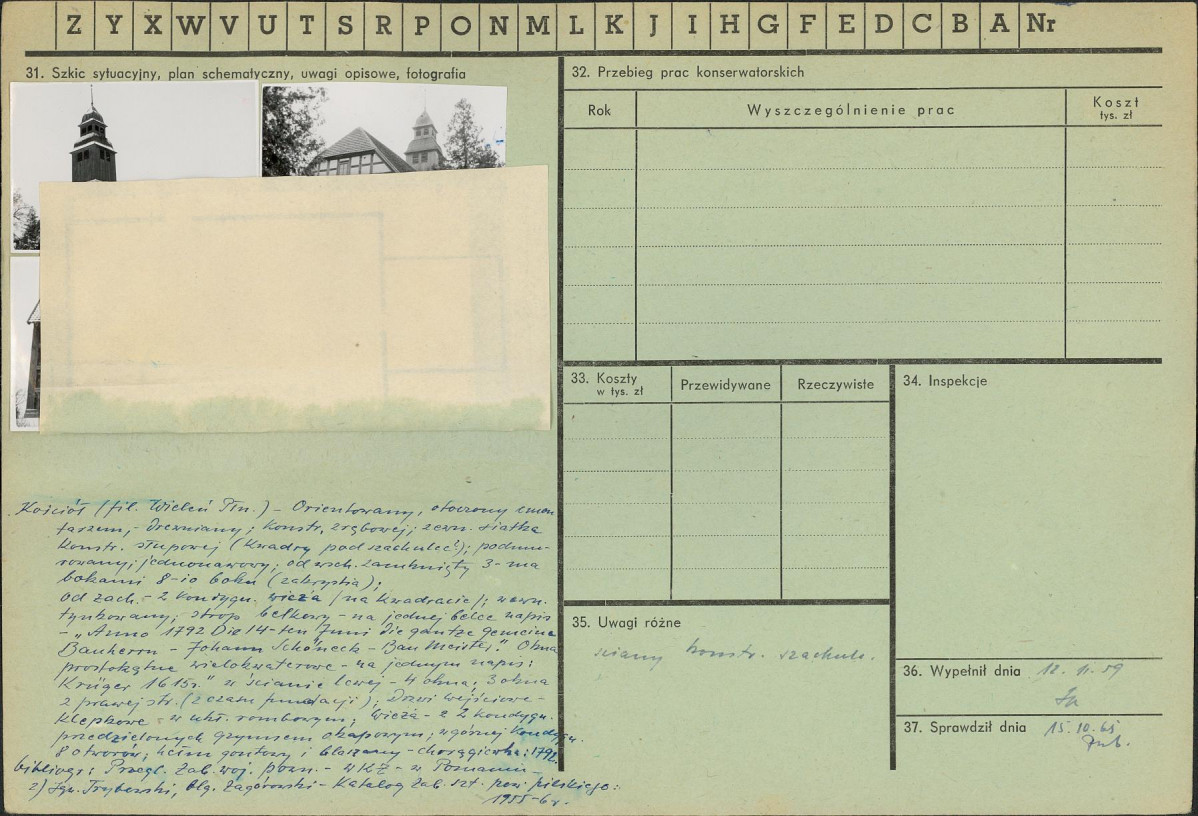 Z Y X W V U T S R P O N M L K J I H G F E D C B A Nr
31. Szkic sytuacyjny, plan schematyczny, uwagi opisowe, fotografia
Kościół (fil. Wieleń Płn.) – Orientowany, otoczony cmen
tarzem, – drewniany; konstr. zrębowej; zewn. siatka
konstr. słupowej (kwadry pod szachulec!); podmu-
rowany; jednonawowy; od wsch. zamknięty 3-ma
bokami 8-io boku (zakrystia);
od zach. – 2 kondygn. wieża /na kwadracie/; wewn.
tynkowany; strop belkowy – na jednej belce napis
– „Anno 1792 Die 14-ten Juni die gantze gemeine
Bauherrn – Johann Schöneck – Bau Meister." Okna
prostokątne wielokwaterowe – na jednym napis:
Krüger 1615r." w ścianie lewej – 4 okna; 3 okna
z prawej str. (z czasu fundacji); Drzwi wejściowe –
klepkowe – w ukł. rombowym; wieża – z 2 kondygn.
przedzielonych gzymsem okapowym; w górnej kondygn.
8 otworów; hełm gontowy i blaszany – chorągiewka: 1792.
bibliogr: Przegl. Zab. woj. pozn. – WKZ – w Poznaniu –
2) Ign. Trybowski, Olg. Zagórowski – Katalog Zab. Szt. pow. pilskiego:
1955–6 r.
32. Przebieg prac konserwatorskich
Rok
Wyszczególnienie prac
Koszt
tys. zł
33. Koszty
w tys. zł
Przewidywane
Rzeczywiste
34. Inspekcje
35. Uwagi różne
ściany konstr. szachulc.
36. Wypełnił dnia 12. 11. 59
37. Sprawdził dnia 15. 10. 65